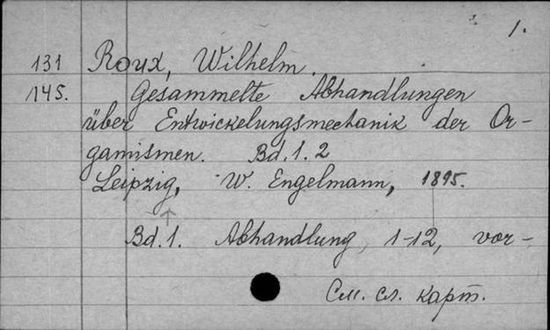 1.
131 Roux, Wilhelm.
145. Gesammelte Abhandlungen
über Entwickelungsmechanik der Or-
ganismen. Bd. 1. 2
Leipzig, W. Engelmann, 1895.
Bd. 1. Abhandlung, 1-12, vor-
См. сл. карт.